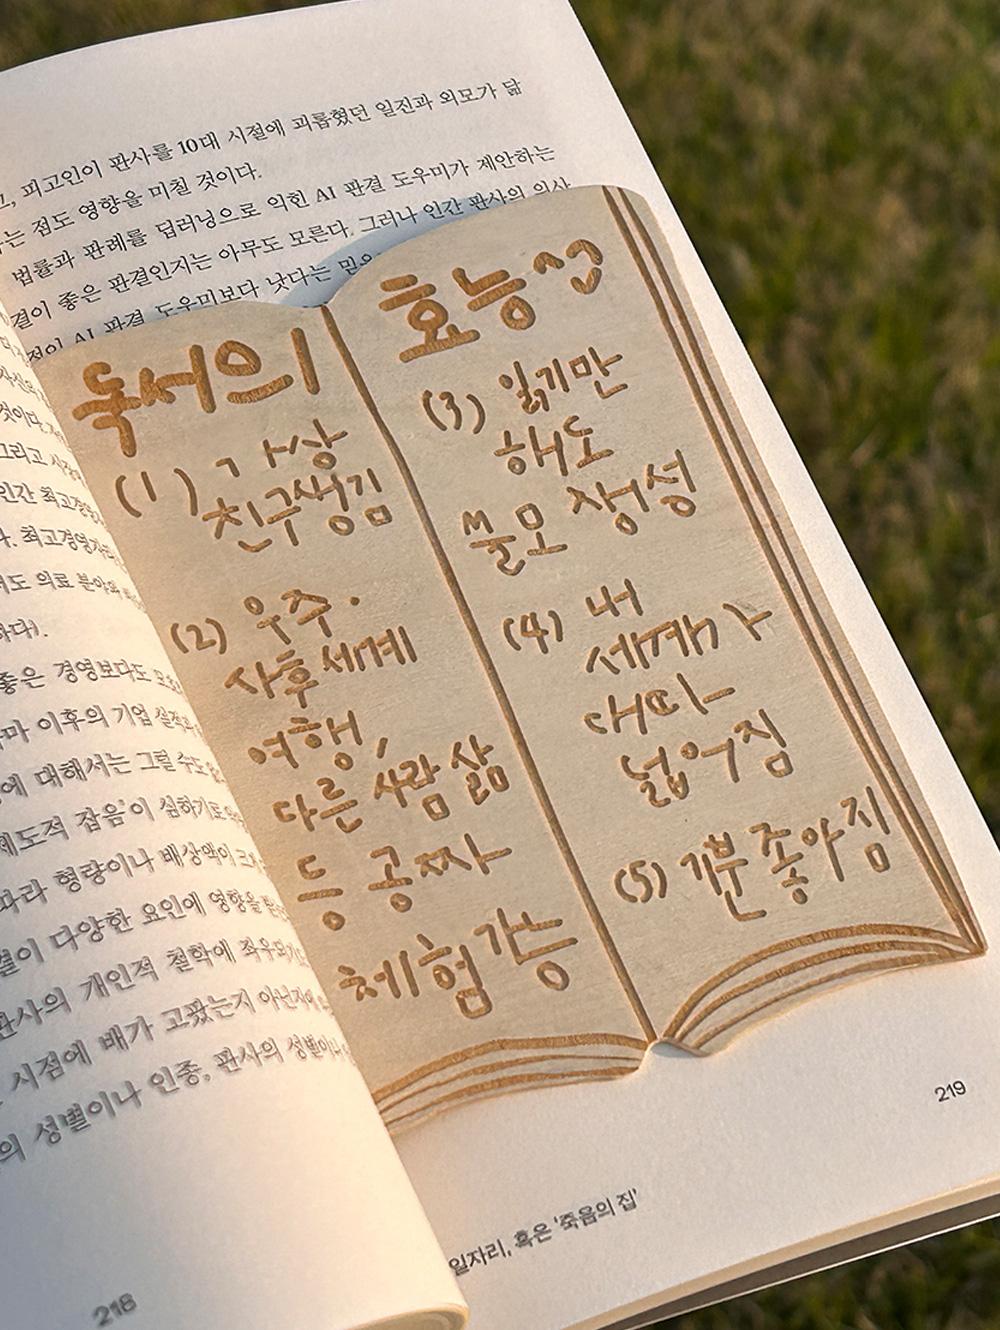 , 피고인이 판사를 10대 시절에 괴롭혔던 일진과 외모가 닮
는 점도 영향을 미칠 것이다.
법률과 판례를 딥러닝으로 익힌 AI 판결 도우미가 제안하는
결이 좋은 판결인지는 아무도 모른다. 그러나 인간 판사의 의사
AI 판결 도우미보다 낫다는 믿
것이다.
그리고
인간 최고경영
. 최고경영자
도 의료 분야
하다).
좋은 경영보다도
마 이후의 기업 실적
에 대해서는 그럴 수도
제도적 잡음'이 심하기로
따라 형량이나 배상액이
결이 다양한 요인에 영향을
판사의 개인적 철학에 좌우되
시점에 배가 고팠는지 아닌지
의 성별이나 인종, 판사의 성별이나
218
독서의
(1) 가상
친구생김
(2) 우주·
사후세계
여행,
다른 사람 삶
등 공짜
체험가능
효능
(3) 읽기만
해도
쓸모 장성
(4) 내
세계가
대따
넓어짐
(5) 기분 좋아짐
219
일자리, 혹은 '죽음의 집'